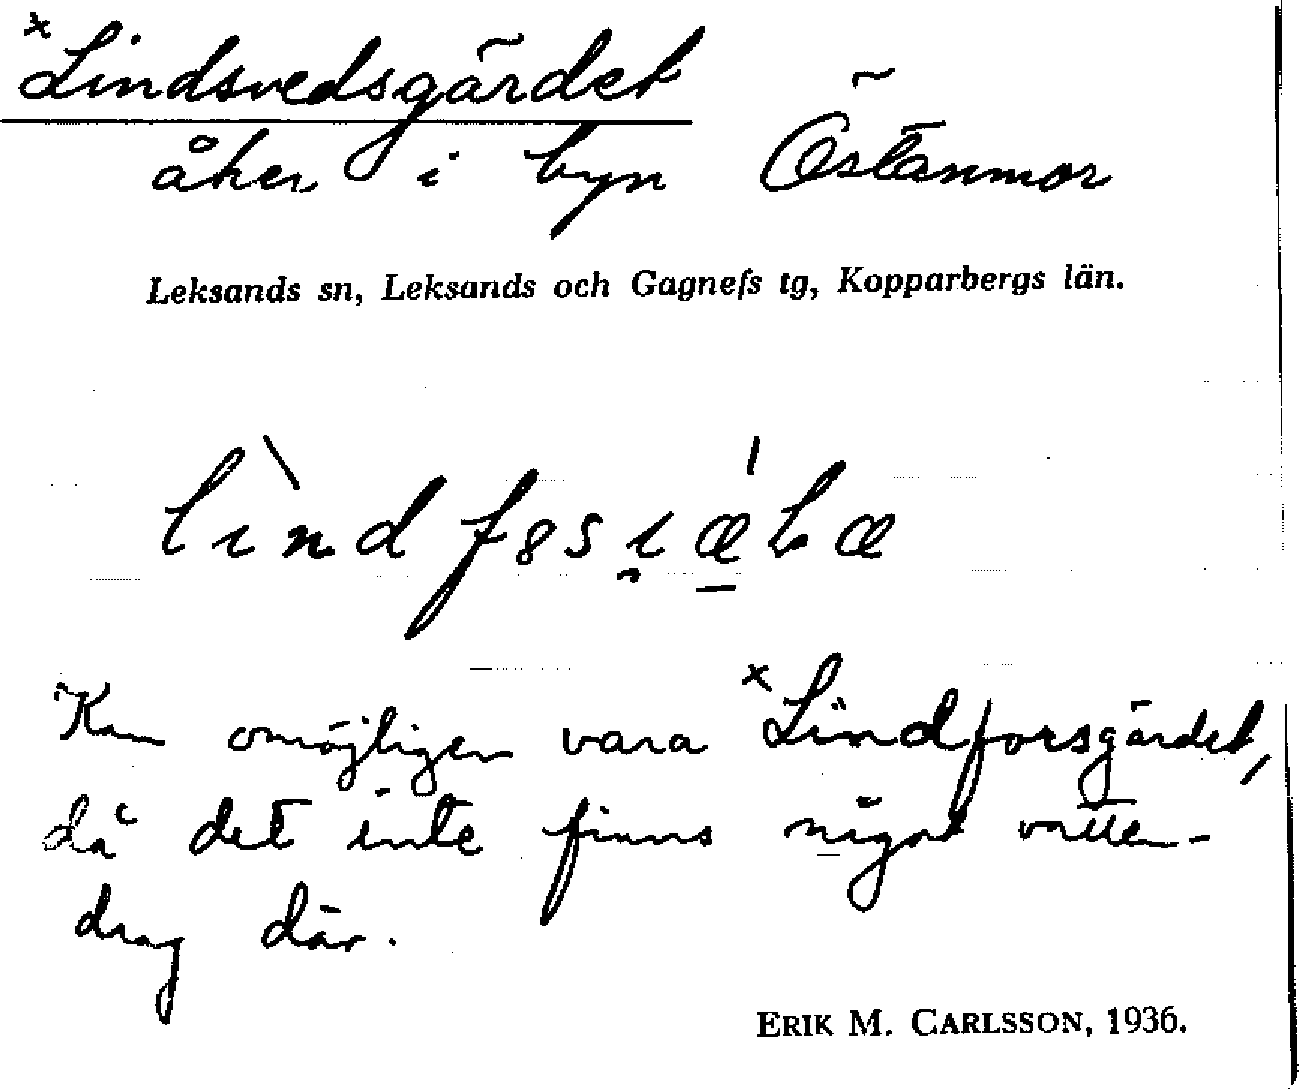 ×Lindsvedsgärdet
åker i byn Östanmor
Leksands sn, Leksands och Gagnefs tg, Kopparbergs län.
Kan omöjligen vara ×Lindforsgärdet,
då det inte finns något vatten-
drag där.
ERIK M. CARLSSON, 1936.